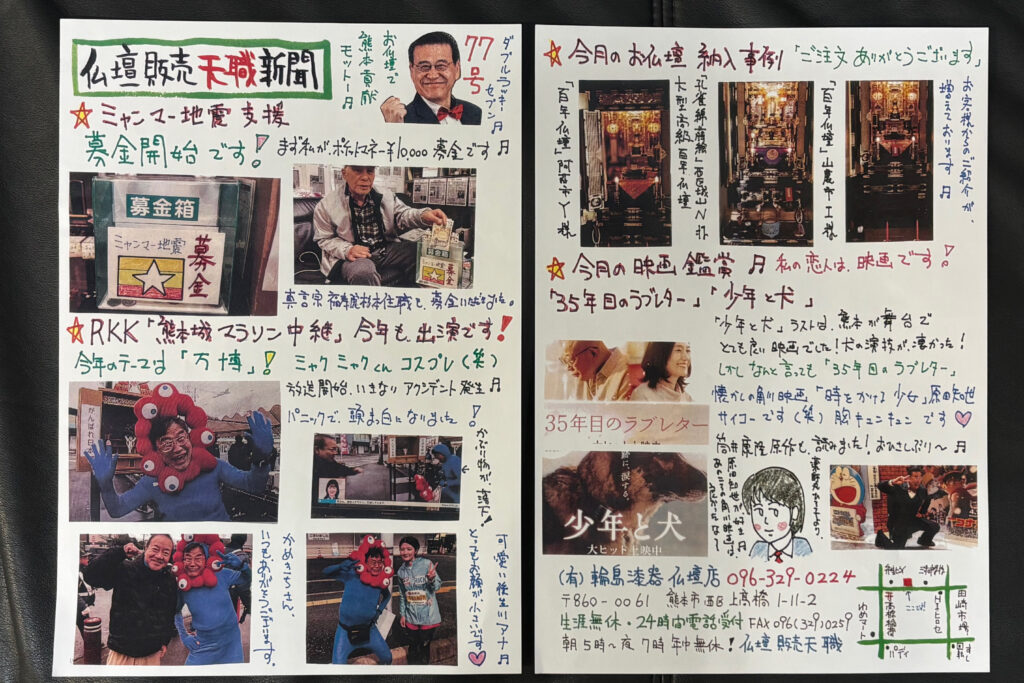 仏壇販売天職新聞
お仏壇で
熊本貢献
モットー♫
77号
ダブルラッキーセブン♫
☆ミャンマー地震支援
募金開始です!
まず私が、ポケットマネー¥10000募金です♫
募金箱
ミャンマー地震
募金
募金箱
募金
住職も、募金いただきました。
☆RKK「熊本城マラソン中継」今年も、出演です!
今年のテーマは「万博」! ミャクミャクくんコスプレ(笑)
放送開始、いきなりアクシデント発生♫
パニックで、頭まっ白になりました!
かぶり物が、落下!
がんばれ
かめきちさん、
いつもありがとうございます。
可愛い後生川アナ♫
とってもお顔が、小さいです
☆今月のお仏壇納入事例「ご注文ありがとうございます」
「百年仏壇」阿蘇市Y様
大型高級百年仏壇
「百年仏壇」山鹿市I様
お客様からのご紹介が、
増えております♫
☆今月の映画鑑賞♫ 私の恋人は、映画です!
「35年目のラブレター」「少年と犬」
「少年と犬」ラストは、熊本が舞台で
とても良い映画でした!犬の演技が、凄かった!
しかしなんと言っても「35年目のラブレター」
懐かしの角川映画「時をかける少女」原田知世
サイコーです(笑)胸キュンキュンです
筒井康隆原作も、読みました!おひさしぶり〜♫
35年目のラブレター
に涙する。
少年と犬
大ヒット上映中
(有)輪島漆器仏壇店 096-329-0224
〒860-0061 熊本市西区上高橋1-11-2
生涯無休・24時間電話受付 FAX096(329)0259
朝5時〜夜7時年中無休!仏壇販売天職
ここ!
高橋稲荷
ゆめマート
田崎市場